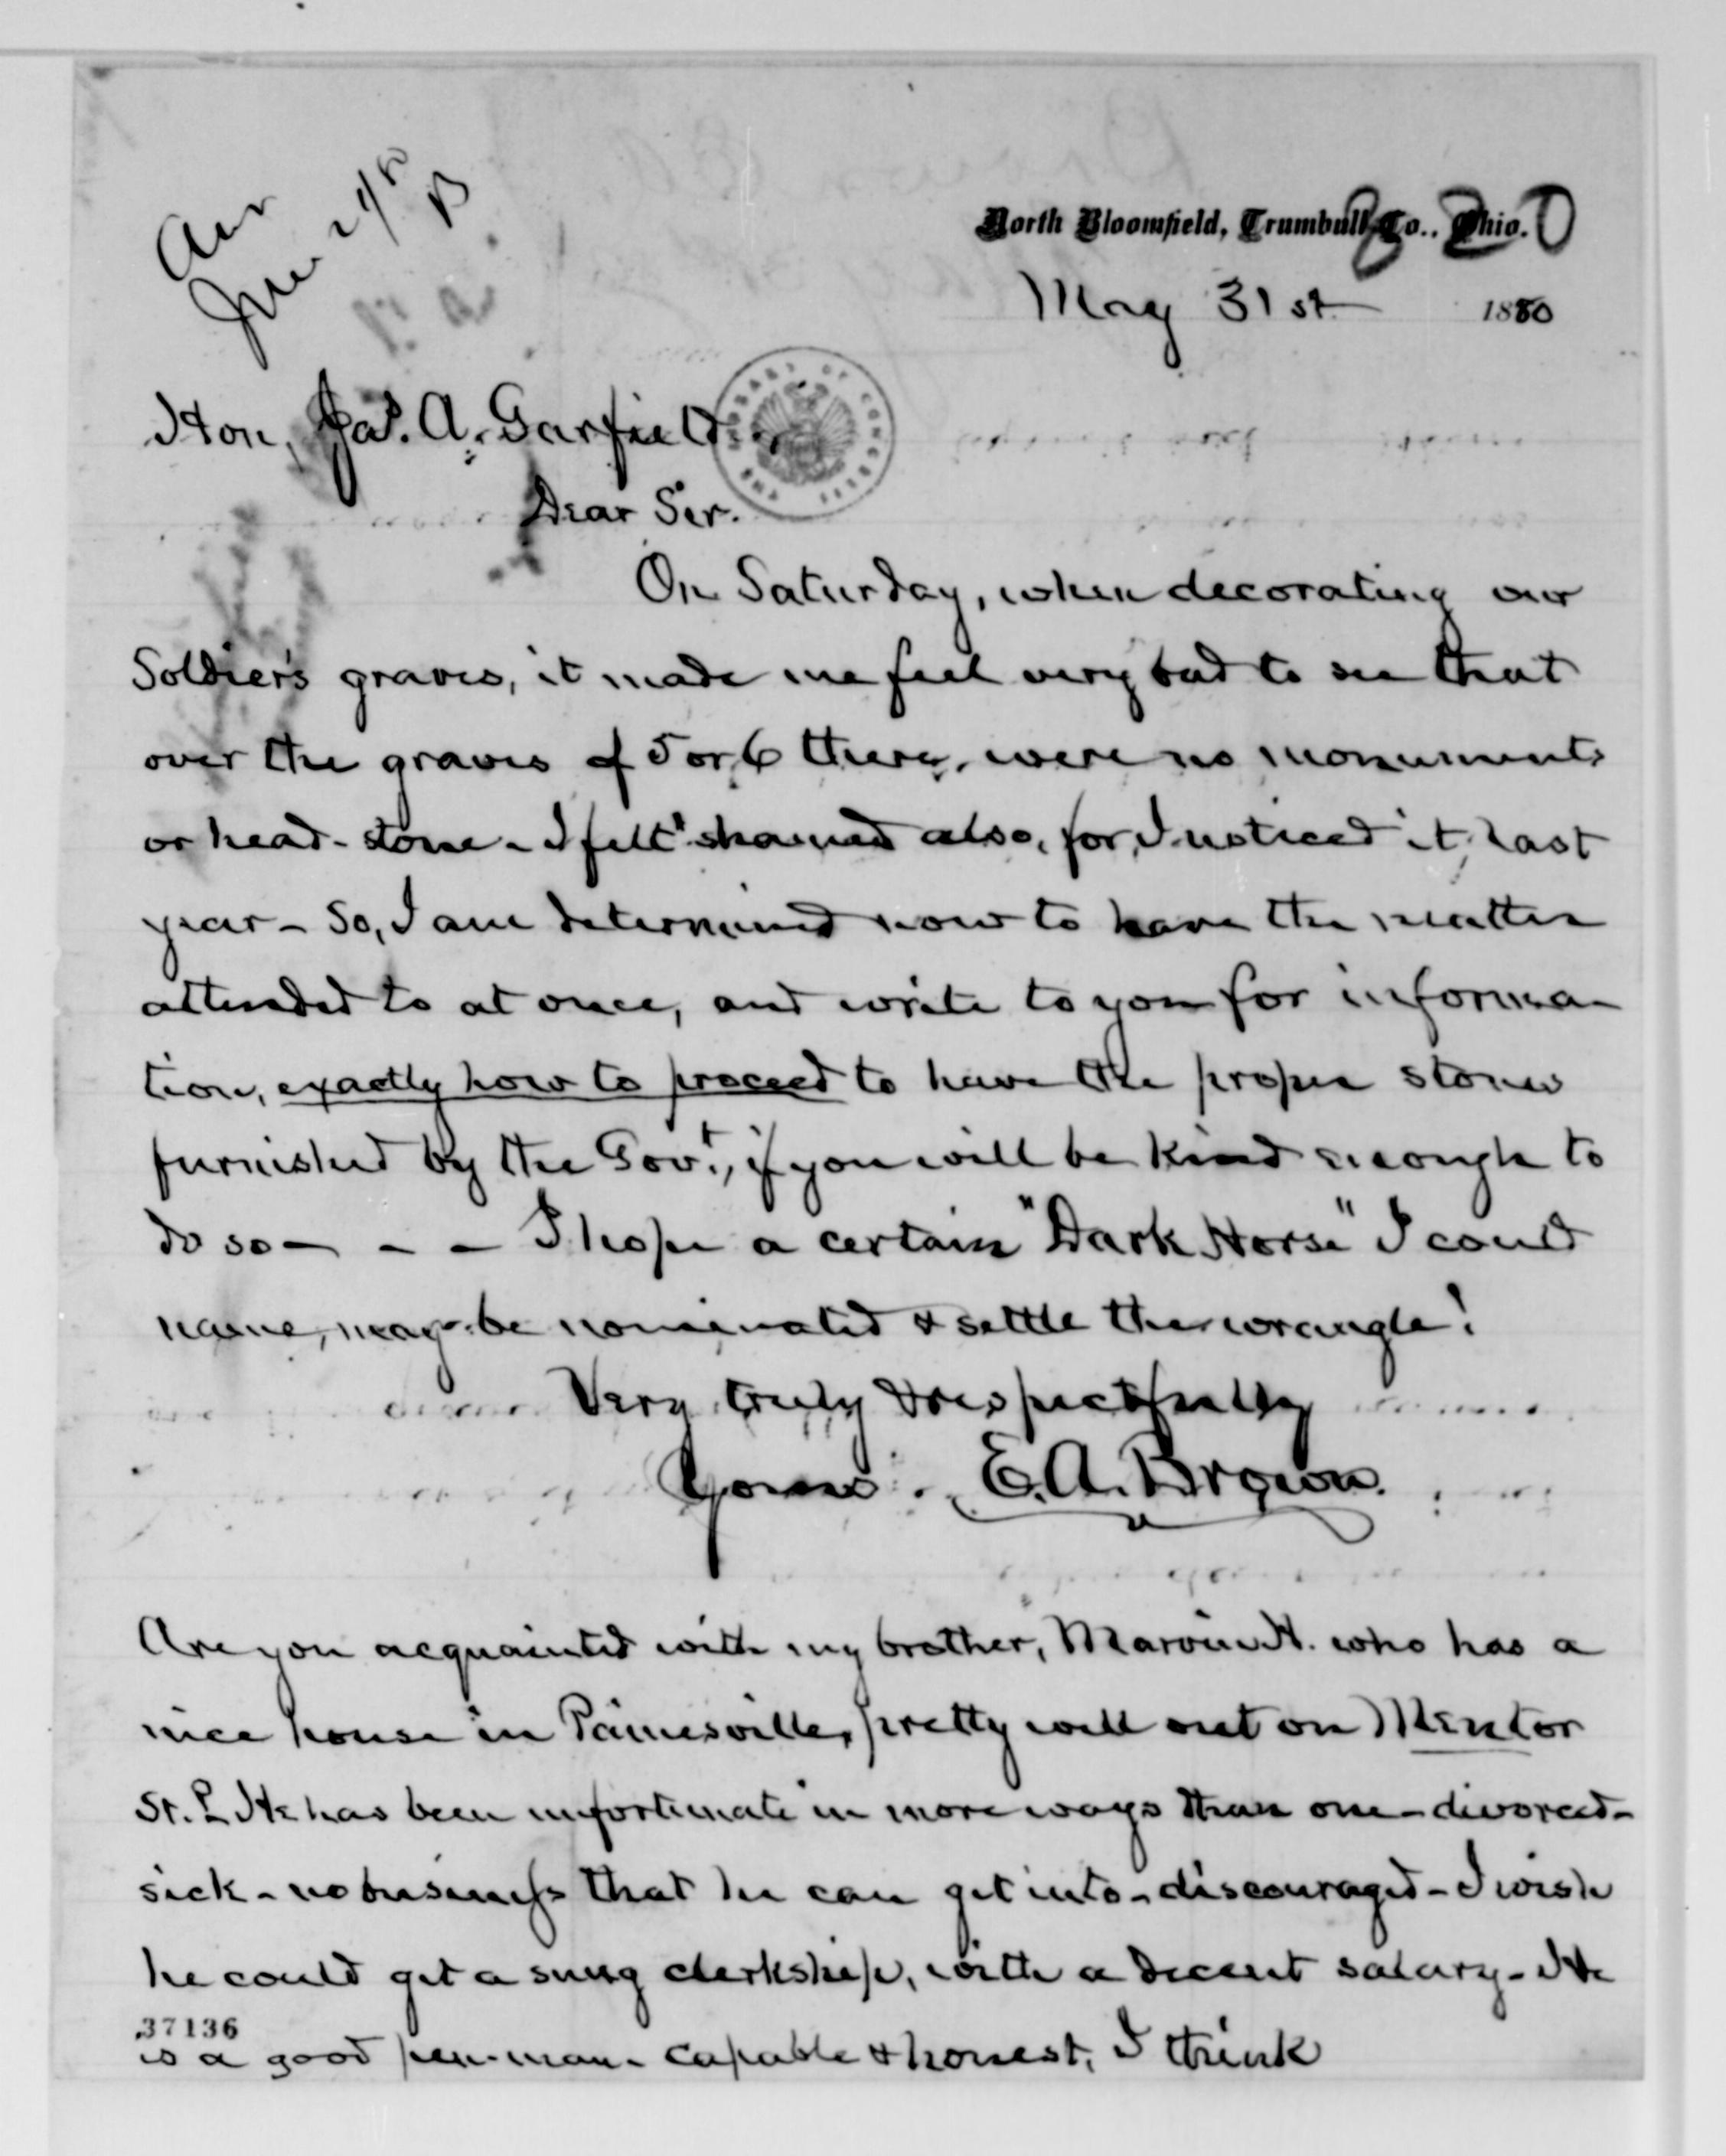 Ans
June 24th
B
North Bloomfield, Trumbull Co., Ohio.
820
May 31st 1880
Hon, Jas. A. Garfield.
THE LIBRARY OF CONGRESS
Dear Sir.
On Saturday, when decorating our
Soldier's graves, it made me feel very bad to see that
over the graves of 5 or 6 there, were no monuments
or head-stone - I felt 'shamed also, for, I noticed it, last
year - So, I am determined now to have the matter
attended to at once, and write to you for informa-
tion, exactly how to proceed to have the proper stones
furnished by the Gov't, if you will be kind enough to
do so - - - I hope a certain "Dark Horse" I could
name, may be nominated & settle the wrangle!
Very truly & respectfully
Yours. E. A. Brown.
Are you acquainted with my brother, Marvin H. who has a
nice house in Painesville, pretty well out on Mentor
St.? He has been unfortunate in more ways than one - divorced -
sick - no business that he can get into - discouraged - I wish
he could get a snug clerkship, with a decent salary - He
37136
is a good pen-man - capable & honest, I think